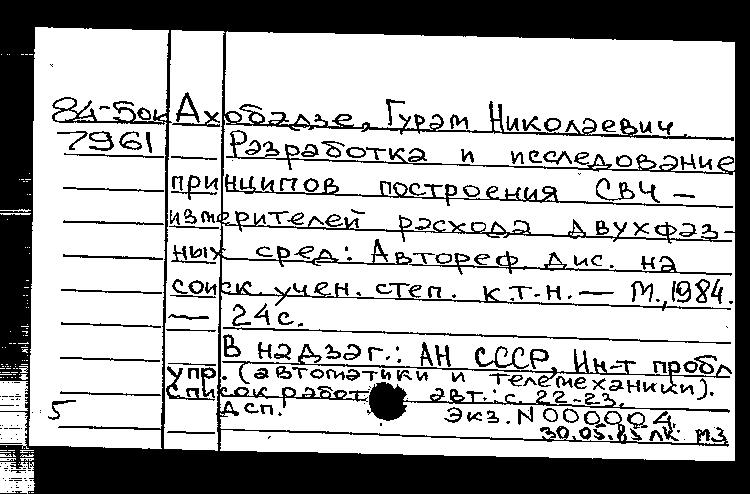 84-5ок Ахобадзе, Гурам Николаевич.
7961 Разработка и исследование
принципов построения СВЧ —
измерителей расхода двухфаз-
ных сред: Автореф. дис. на
соиск. учен. степ. к.т.н. — М., 1984.
— 24с.
В надзаг.: АН СССР, Ин-т пробл
упр. (автоматики и телемеханики).
Список работ авт.: с. 22-23.
5 Дсп. Экз. N 000004
30.05.85 лк. мз